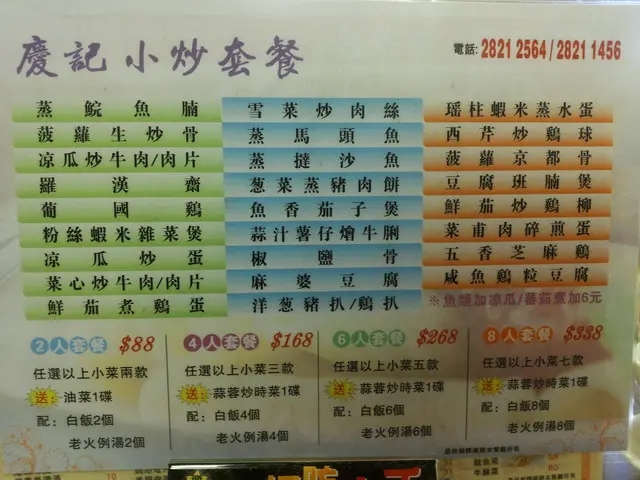 慶記小炒套餐
電話: 2821 2564 / 2821 1456
蒸鯇魚腩
菠蘿生炒骨
凉瓜炒牛肉/肉片
羅漢齋
葡國鷄
粉絲蝦米雜菜煲
凉瓜炒蛋
菜心炒牛肉/肉片
鮮茄煮鷄蛋
雪菜炒肉絲
蒸馬頭魚
蒸撻沙魚
葱菜蒸豬肉餅
魚香茄子煲
蒜汁薯仔燴牛脷
椒鹽骨
麻婆豆腐
洋葱豬扒/鷄扒
瑶柱蝦米蒸水蛋
西芹炒鷄球
菠蘿京都骨
豆腐班腩煲
鮮茄炒鷄柳
菜甫肉碎煎蛋
五香芝麻鷄
咸魚鷄粒豆腐
※魚類加凉瓜/蕃茄煮加6元
2人套餐 $88
任選以上小菜兩款
送: 油菜1碟
配: 白飯2個
老火例湯2個
4人套餐 $168
任選以上小菜三款
送: 蒜蓉炒時菜1碟
配: 白飯4個
老火例湯4個
6人套餐 $268
任選以上小菜五款
送: 蒜蓉炒時菜1碟
配: 白飯6個
老火例湯6個
8人套餐 $338
任選以上小菜七款
送: 蒜蓉炒時菜1碟
配: 白飯8個
老火例湯8個